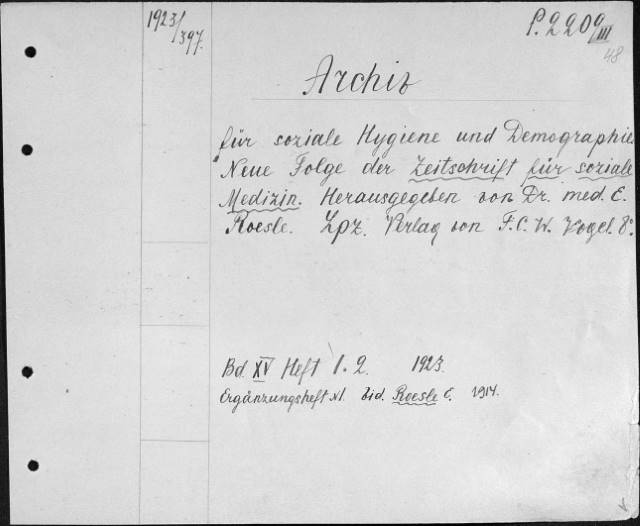 1923/397.
P. 2209/III
48
Archiv
für soziale Hygiene und Demographie.
Neue Folge der Zeitschrift für soziale
Medizin. Herausgegeben von Dr. med. E.
Roesle. Lpz. Verlag von F. C. W. Vogel. 8°.
Bd. XV Heft 1. 2. 1923.
Ergänzungsheft №1. Roesle E. 1914.